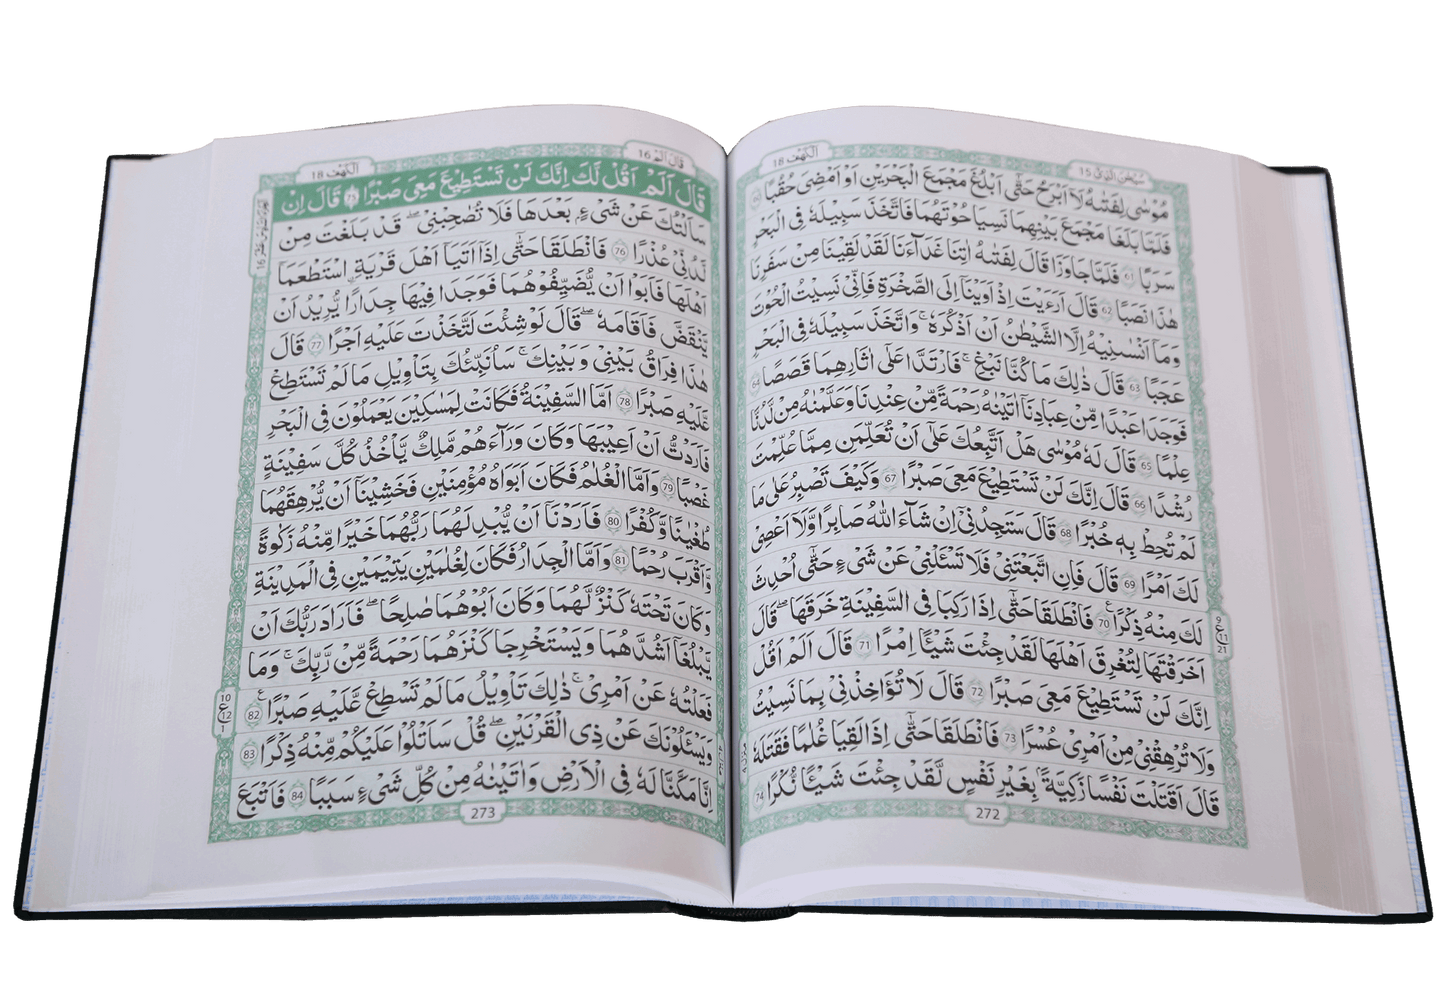 سبحن الذي 15
الكهف 18
مُوْسٰى لِفَتٰىهُ لَاۤ اَبْرَحُ حَتّٰۤى اَبْلُغَ مَجْمَعَ الْبَحْرَيْنِ اَوْ اَمْضِىَ حُقُبًا 60
فَلَمَّا بَلَغَا مَجْمَعَ بَيْنِهِمَا نَسِيَا حُوْتَهُمَا فَاتَّخَذَ سَبِيْلَهٗ فِى الْبَحْرِ
سَرَبًا 61 فَلَمَّا جَاوَزَا قَالَ لِفَتٰىهُ اٰتِنَا غَدَآءَنَا لَقَدْ لَقِيْنَا مِنْ سَفَرِنَا
هٰذَا نَصَبًا 62 قَالَ اَرَءَيْتَ اِذْ اَوَيْنَاۤ اِلَى الصَّخْرَةِ فَاِنِّىْ نَسِيْتُ الْحُوْتَ
وَمَاۤ اَنْسٰىنِيْهُ اِلَّا الشَّيْطٰنُ اَنْ اَذْكُرَهٗ ۚ وَاتَّخَذَ سَبِيْلَهٗ فِى الْبَحْرِ
عَجَبًا 63 قَالَ ذٰلِكَ مَا كُنَّا نَبْغِ ۚ فَارْتَدَّا عَلٰۤى اٰثَارِهِمَا قَصَصًا 64
فَوَجَدَا عَبْدًا مِّنْ عِبَادِنَاۤ اٰتَيْنٰهُ رَحْمَةً مِّنْ عِنْدِنَا وَعَلَّمْنٰهُ مِنْ لَّدُنَّا
عِلْمًا 65 قَالَ لَهٗ مُوْسٰى هَلْ اَتَّبِعُكَ عَلٰۤى اَنْ تُعَلِّمَنِ مِمَّا عُلِّمْتَ
رُشْدًا 66 قَالَ اِنَّكَ لَنْ تَسْتَطِيْعَ مَعِىَ صَبْرًا 67 وَكَيْفَ تَصْبِرُ عَلٰى مَا
لَمْ تُحِطْ بِهٖ خُبْرًا 68 قَالَ سَتَجِدُنِىْۤ اِنْ شَآءَ اللّٰهُ صَابِرًا وَّلَاۤ اَعْصِىْ
لَكَ اَمْرًا 69 قَالَ فَاِنِ اتَّبَعْتَنِىْ فَلَا تَسْـَٔلْنِىْ عَنْ شَىْءٍ حَتّٰۤى اُحْدِثَ
لَكَ مِنْهُ ذِكْرًا 70 فَانْطَلَقَا حَتّٰۤى اِذَا رَكِبَا فِى السَّفِيْنَةِ خَرَقَهَا ؕ قَالَ
اَخَرَقْتَهَا لِتُغْرِقَ اَهْلَهَا لَقَدْ جِئْتَ شَيْـًٔا اِمْرًا 71 قَالَ اَلَمْ اَقُلْ
اِنَّكَ لَنْ تَسْتَطِيْعَ مَعِىَ صَبْرًا 72 قَالَ لَا تُؤَاخِذْنِىْ بِمَا نَسِيْتُ
وَلَا تُرْهِقْنِىْ مِنْ اَمْرِىْ عُسْرًا 73 فَانْطَلَقَا حَتّٰۤى اِذَا لَقِيَا غُلٰمًا فَقَتَلَهٗ
قَالَ اَقَتَلْتَ نَفْسًا زَكِيَّةً ۢ بِغَيْرِ نَفْسٍ لَّقَدْ جِئْتَ شَيْـًٔا نُّكْرًا 74
9
ع
11
21
منزل ٤
272
قال الم 16
الكهف 18
قَالَ اَلَمْ اَقُلْ لَّكَ اِنَّكَ لَنْ تَسْتَطِيْعَ مَعِىَ صَبْرًا 75 قَالَ اِنْ
سَاَلْتُكَ عَنْ شَىْءٍۢ بَعْدَهَا فَلَا تُصٰحِبْنِىْ ۖ قَدْ بَلَغْتَ مِنْ
لَّدُنِّىْ عُذْرًا 76 فَانْطَلَقَا حَتّٰۤى اِذَاۤ اَتَيَاۤ اَهْلَ قَرْيَةِ ۟اسْتَطْعَمَاۤ
اَهْلَهَا فَاَبَوْا اَنْ يُّضَيِّفُوْهُمَا فَوَجَدَا فِيْهَا جِدَارًا يُّرِيْدُ اَنْ
يَّنْقَضَّ فَاَقَامَهٗ ؕ قَالَ لَوْ شِئْتَ لَتَّخَذْتَ عَلَيْهِ اَجْرًا 77 قَالَ
هٰذَا فِرَاقُ بَيْنِىْ وَبَيْنِكَ ۚ سَاُنَبِّئُكَ بِتَاْوِيْلِ مَا لَمْ تَسْتَطِعْ
عَّلَيْهِ صَبْرًا 78 اَمَّا السَّفِيْنَةُ فَكَانَتْ لِمَسٰكِيْنَ يَعْمَلُوْنَ فِى الْبَحْرِ
فَاَرَدْتُّ اَنْ اَعِيْبَهَا وَكَانَ وَرَآءَهُمْ مَّلِكٌ يَّاْخُذُ كُلَّ سَفِيْنَةٍ
غَصْبًا 79 وَاَمَّا الْغُلٰمُ فَكَانَ اَبَوٰهُ مُؤْمِنَيْنِ فَخَشِيْنَاۤ اَنْ يُّرْهِقَهُمَا
طُغْيَانًا وَّكُفْرًا 80 فَاَرَدْنَاۤ اَنْ يُّبْدِلَهُمَا رَبُّهُمَا خَيْرًا مِّنْهُ زَكٰوةً
وَّاَقْرَبَ رُحْمًا 81 وَاَمَّا الْجِدَارُ فَكَانَ لِغُلٰمَيْنِ يَتِيْمَيْنِ فِى الْمَدِيْنَةِ
وَكَانَ تَحْتَهٗ كَنْزٌ لَّهُمَا وَكَانَ اَبُوْهُمَا صَالِحًا ۖ فَاَرَادَ رَبُّكَ اَنْ
يَّبْلُغَاۤ اَشُدَّهُمَا وَيَسْتَخْرِجَا كَنْزَهُمَا رَحْمَةً مِّنْ رَّبِّكَ ۚ وَمَا
فَعَلْتُهٗ عَنْ اَمْرِىْ ؕ ذٰلِكَ تَاْوِيْلُ مَا لَمْ تَسْطِعْ عَّلَيْهِ صَبْرًا 82
وَيَسْـَٔلُوْنَكَ عَنْ ذِى الْقَرْنَيْنِ ؕ قُلْ سَاَتْلُوْا عَلَيْكُمْ مِّنْهُ ذِكْرًا 83
اِنَّا مَكَّنَّا لَهٗ فِى الْاَرْضِ وَاٰتَيْنٰهُ مِنْ كُلِّ شَىْءٍ سَبَبًا 84 فَاَتْبَعَ
10
ع
12
1
منزل ٤
273